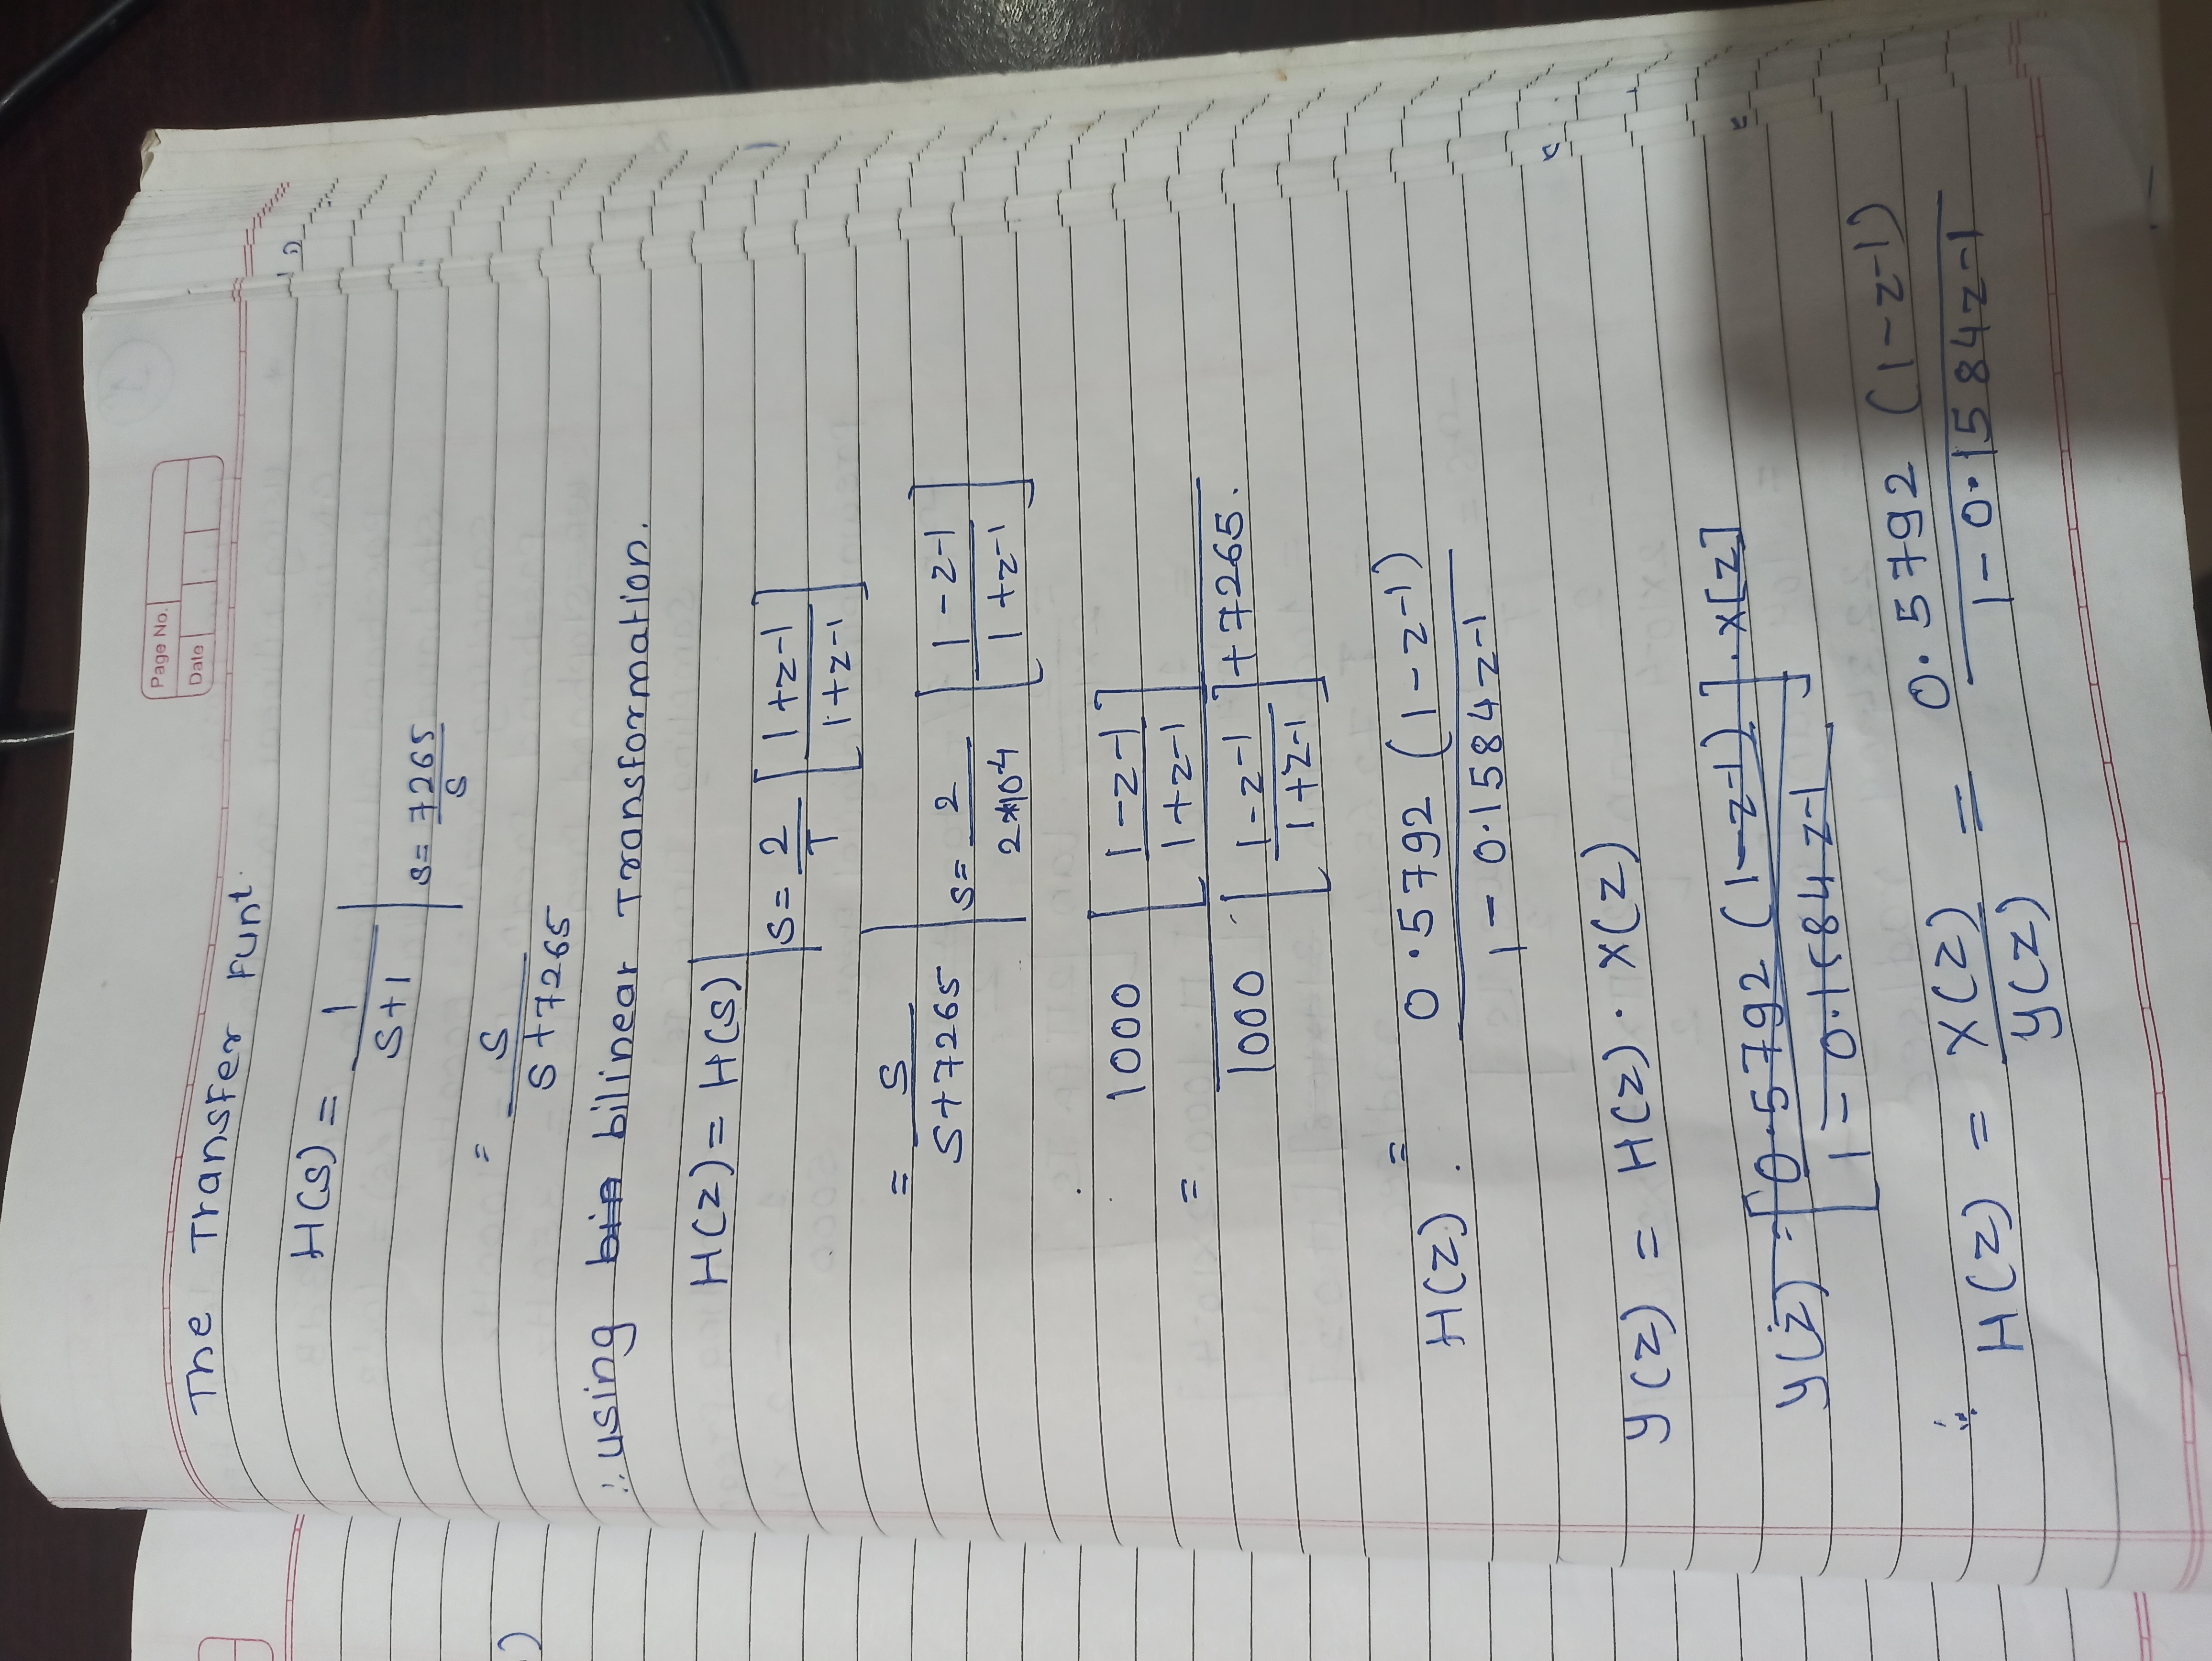 Page No.
Date
The Transfer Funt.
H(s) = 1
s+1
s = 7265
s
= s
s+7265
∴ using bin bilinear Transformation.
H(z) = H(s)
s = 2 [ 1+z-1
T 1+z-1 ]
= s
s+7265
s = 2 [ 1-z-1
2*10-4 1+z-1 ]
1000 [ 1-z-1
1+z-1 ]
=
1000 [ 1-z-1 ] + 7265.
1+z-1
H(z) = 0.5792 (1-z-1)
1 - 0.1584z-1
y(z) = H(z) · X(z)
y(z) = [ 0.5792 (1-z-1) ] . x[z]
1 - 0.1584z-1
∴ H(z) = X(z) = 0.5792 (1-z-1)
y(z) 1 - 0.1584z-1